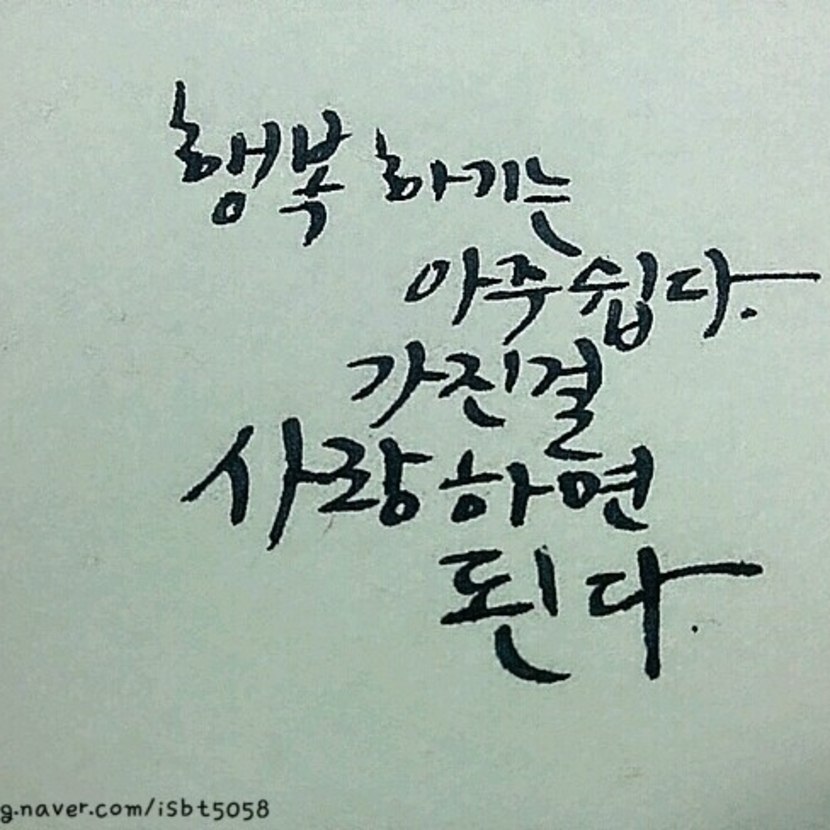 행복 하기는
아주 쉽다.
가진걸
사랑하면
된다.
g.naver.com/isbt5058